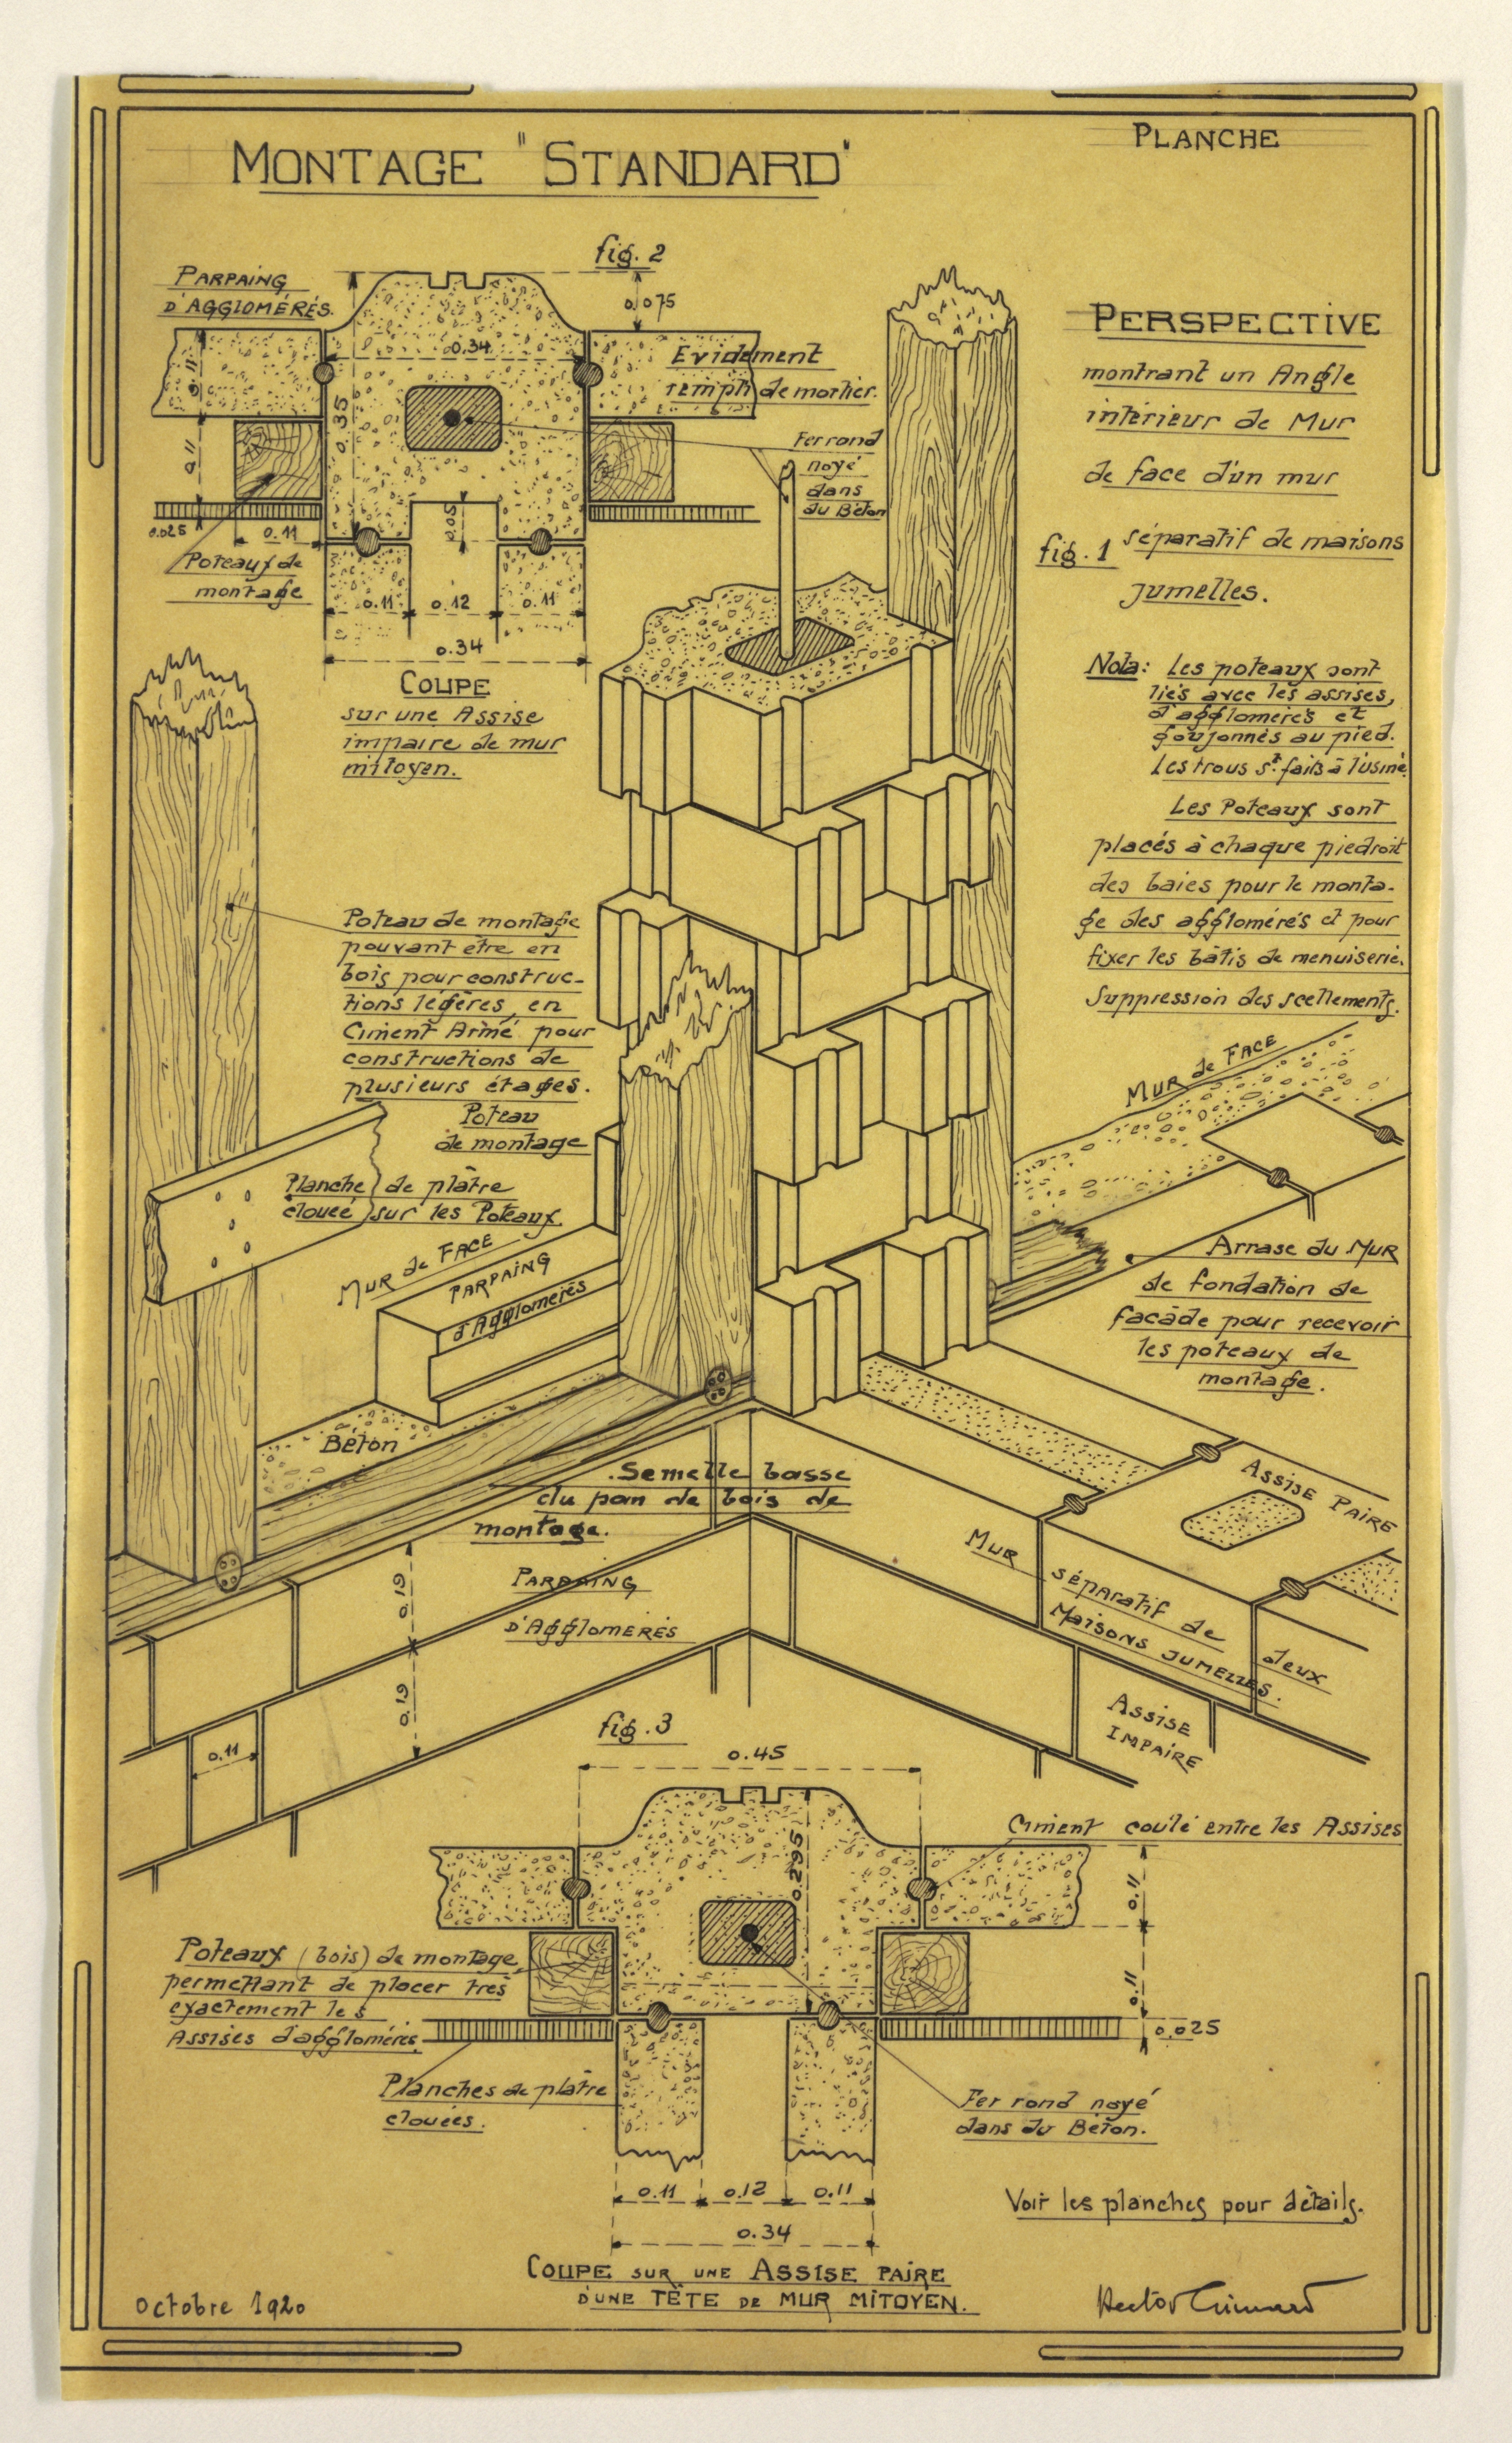 PLANCHE
MONTAGE "STANDARD"
fig. 2
PARPAING
D'AGGLOMÉRÉS.
0.075
0.34
0.35
0.11
0.11
0.025
0.11
Evidement
rempli de mortier.
Fer rond
noyé
dans
du Béton
Poteaux de
montage
0.05
0.11
0.12
0.11
0.34
COUPE
sur une Assise
impaire de mur
mitoyen.
PERSPECTIVE
montrant un Angle
intérieur de Mur
de face d'un mur
fig. 1
séparatif de maisons
jumelles.
Nota: Les poteaux sont
liés avec les assises,
d'agglomérés et
goujonnés au pied.
Les trous st faits à l'usine.
Les Poteaux sont
placés à chaque piedroit
des baies pour le monta-
ge des agglomérés et pour
fixer les bâtis de menuiserie.
Suppression des scellements.
Poteau de montage
pouvant être en
bois pour construc-
tions légères, en
Ciment Armé pour
constructions de
plusieurs étages.
Poteau
de montage
Planche de plâtre
clouée sur les Poteaux
MUR de FACE
PARPAING
d'Agglomérés
Béton
MUR de FACE
Arrase du MUR
de fondation de
façade pour recevoir
les poteaux de
montage.
Semelle basse
du pan de bois de
montage.
PARPAING
D'AGGLOMÉRÉS
0.19
0.19
0.11
ASSISE PAIRE
MUR séparatif de deux
MAISONS JUMELLES.
ASSISE
IMPAIRE
fig. 3
0.45
0.295
Ciment coulé entre les Assises
0.11
0.11
0.025
Poteaux (bois) de montage
permettant de placer très
exactement les
Assises d'agglomérés.
Planches de plâtre
clouées.
Fer rond noyé
dans du Béton.
0.11
0.12
0.11
0.34
Voir les planches pour détails.
COUPE SUR UNE ASSISE PAIRE
D'UNE TÊTE DE MUR MITOYEN.
Octobre 1920
Hector Guimard